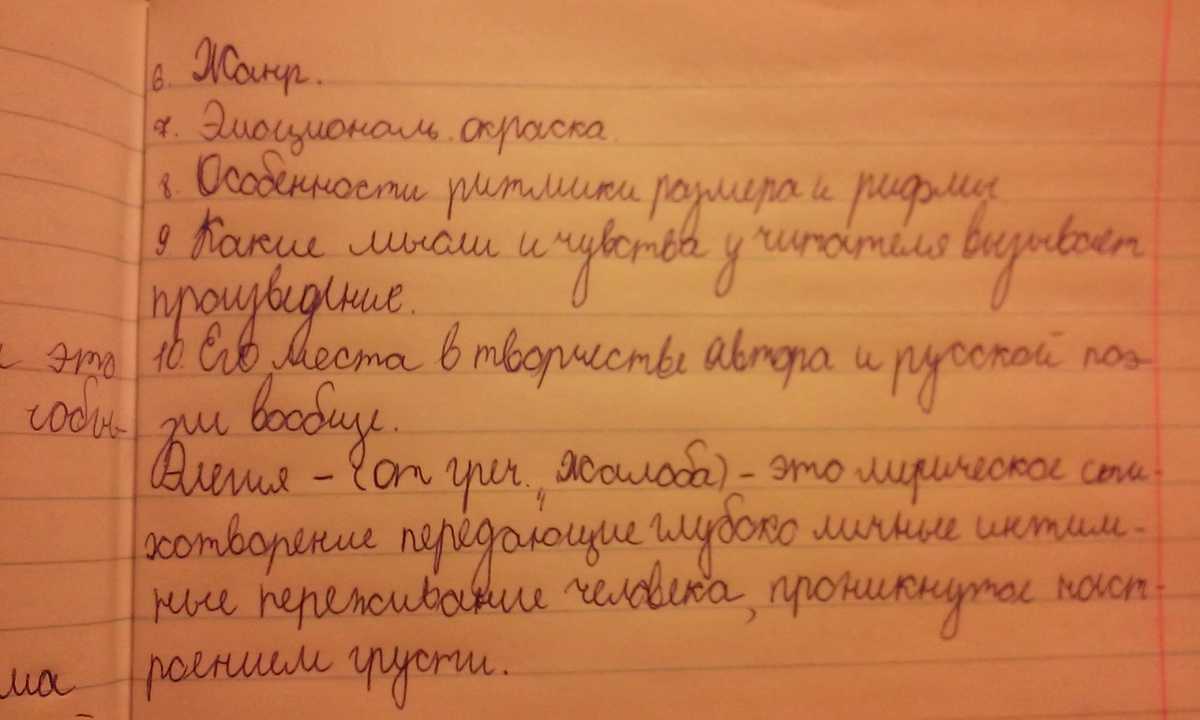 6. Жанр.
7. Эмоциональ. окраска.
8. Особенности ритмики размера и рифмы
9 Какие мысли и чувства у читателя вызывает
произведение.
это 10. Его места в творчестве автора и русской поэ-
чобы- зии вообще.
Элегия – (от греч. „Жалоба) – это лирическое сти-
хотворение передающие глубоко личные интим-
ные переживание человека, проникнутое наст-
ма роением грусти.